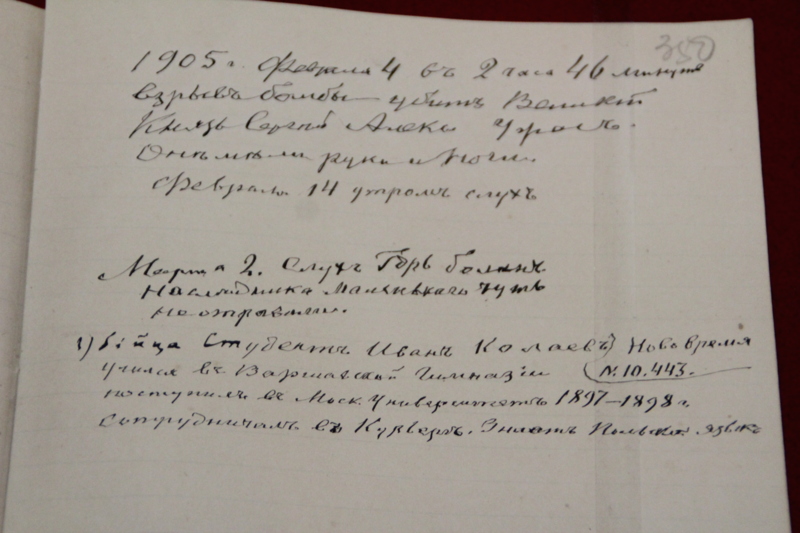 350
1905 г. Февраля 4 въ 2 часа 46 минутъ
взрывъ бомбы убитъ Великій
Князь Сергѣй Алекс
Онѣмѣли руки и Ноги.
Февраля 14 утромъ слухъ
Марта 2. Слухъ Боленъ
Наслѣдника Маленькаго чуть
не отравили.
1) Убійца Студентъ Иванъ Колаевъ) Ново время
учился въ Варшавской Гимназіи N. 10.443.
поступилъ въ Моск. Университетъ 1897–1898 г
сотрудничалъ въ Знаетъ Польскій языкъ